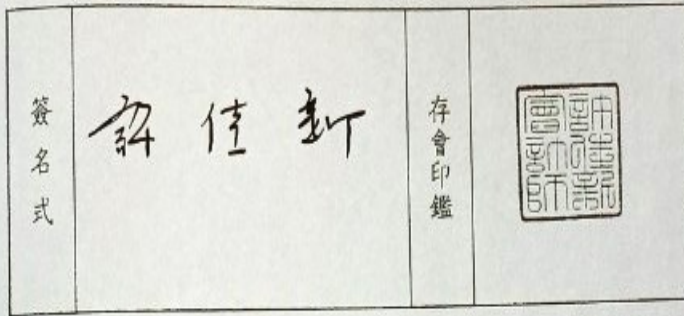 簽名式
許佳新
存會印鑑
許佳新
會計師